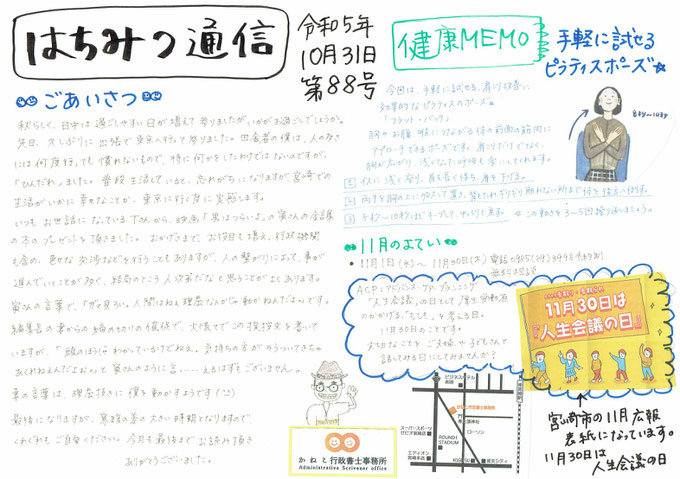 はちみつ通信
令和5年
10月31日
第88号
ごあいさつ
秋らしく、日中は過ごしやすい日が増えて参りましたが、いかがお過ごしでしょうか。
先日、久しぶりに出張で東京へ行って参りました。田舎者の僕は、人の多さ
には何度行っても慣れないもので、特に何かをしたわけではないのですが、
「ひんだれ」ました。普段生活していると、忘れがちになりますが、宮崎での
生活がいかに幸せなことか、東京に行く度に実感します。
いつもお世話になっているTさんから、映画「男はつらいよ」の寅さんの
の本のプレゼントを頂きました。おかげさまで、お役目も増え、行政機関
も含め、色々な交渉などを行うこともありますが、人の繋がりによって、事が
進んでいくことが多く、結局のところ人次第だなと思うことがよくあります。
寅さんの言葉で、「ザマ見ろぃ、人間はね、理屈なんかじゃ動かねえんだよ」です。
編集長の妻からの締め切りの催促で、大慌てでこの挨拶文を書いて
いますが、「頭のほうじゃわかっているけどね、気持ちのほうが
と寅さんのように言・・・えるはずもございません。
妻の言葉は、理屈抜きに僕を動かすようです(^^)
最後になりますが、寒暖の差の大きい時期となりますので、
くれぐれもご自愛ください。今月も最後までお読み頂き
ありがとうございました。
かねこ行政書士事務所
Administrative Scrivener office
健康MEMO
手軽に試せる
ピラティスポーズ☆
今回は、手軽に試せる、肩こり改善に
効果的なピラティスのポーズ。
「フラット・バック」
胸やお腹、喉につながる体の前面の筋肉に
アプローチできるポーズです。肩こりだけでなく、
胸が広がり、浅くなった呼吸も楽にしてくれます。
8秒〜10秒
1 イスに浅く座り、肩を引く、肩を下げる。
2 両手を胸の上にクロスして置き、背もたれギリギリ触れない所まで体を後方へ倒す。
3 8秒〜10秒ほどキープして、ゆっくり戻す。 ※この動きを3〜5回繰り返しましょう。
11月のよてい
11月1日(水)〜11月30日(木) 電話0985
無料相談
ACP:アドバンス・ケア・プランニング
「人生会議」の日として、厚生労働省
のかかげる、"もしも"を考える日。
11月30日のことです。
大切なことをご夫婦や子どもさんで
話してみる日にしてみませんか?
11月30日は
『人生会議の日』
ビジネスホテル
かねこ行政書士事務所
ローソン
スーパースポーツ
ゼビオ宮崎店
ROUND1
STADIUM
エディオン
宮崎本店
宮交シティ
宮崎市の11月広報
表紙になっています。
11月30日は
人生会議の日